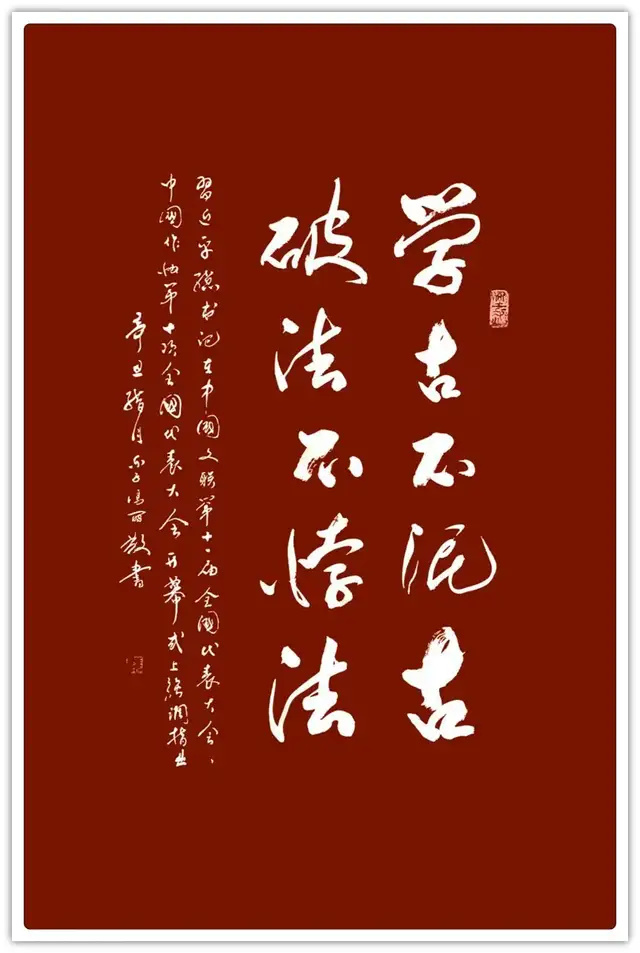 学古不泥古
破法不悖法
習近平总书记在中國文联第十一届全國代表大会、
中國作协第十次全國代表大会开幕式上强调指出
辛丑腊月
敬書